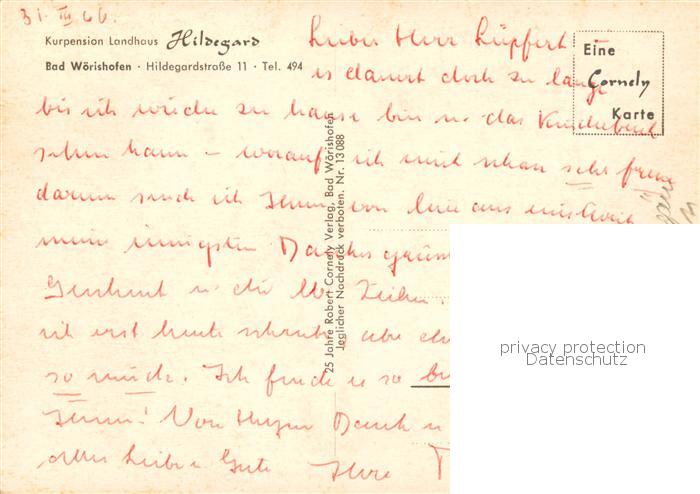 31. III 66
Kurpension Landhaus Hildegard
Bad Wörishofen · Hildegardstraße 11 · Tel. 494
Eine
Cornely
Karte
Lieber Herr Lüpfert
es dauert doch zu lange
bis ich wieder zu hause bin u. das
sehen kann – worauf ich mich schon sehr freue
darum sende ich Ihnen von hier aus
meine innigsten Dankesgrüsse
Geschenk u. die lb. Zeilen.
ich erst heute schreibe aber
so müde. Ich finde es so
Ihnen! Von Herzen Dank u
alles Liebe u Gute Ihre
25 Jahre Robert Cornely Verlag, Bad Wörishofen
Jeglicher Nachdruck verboten. Nr. 13 088
privacy protection
Datenschutz